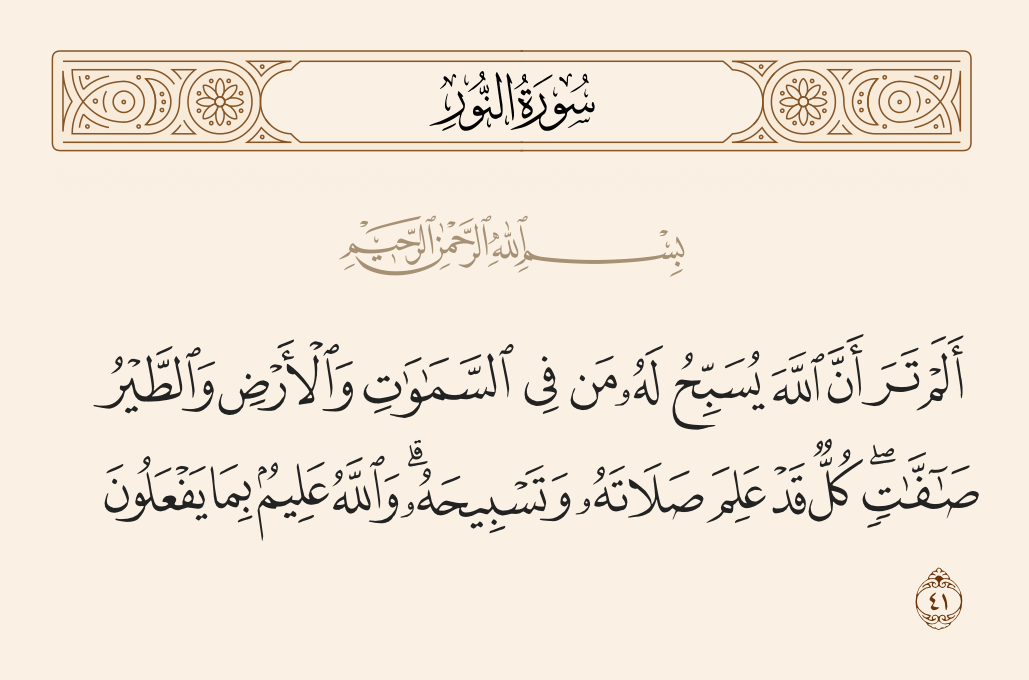 سُورَةُ النُّورِ
بِسْمِ ٱللَّهِ ٱلرَّحْمَٰنِ ٱلرَّحِيمِ
أَلَمْ تَرَ أَنَّ ٱللَّهَ يُسَبِّحُ لَهُۥ مَن فِى ٱلسَّمَٰوَٰتِ وَٱلْأَرْضِ وَٱلطَّيْرُ
صَٰٓفَّٰتٍۢ ۖ كُلٌّۭ قَدْ عَلِمَ صَلَاتَهُۥ وَتَسْبِيحَهُۥ ۗ وَٱللَّهُ عَلِيمٌۢ بِمَا يَفْعَلُونَ
٤١